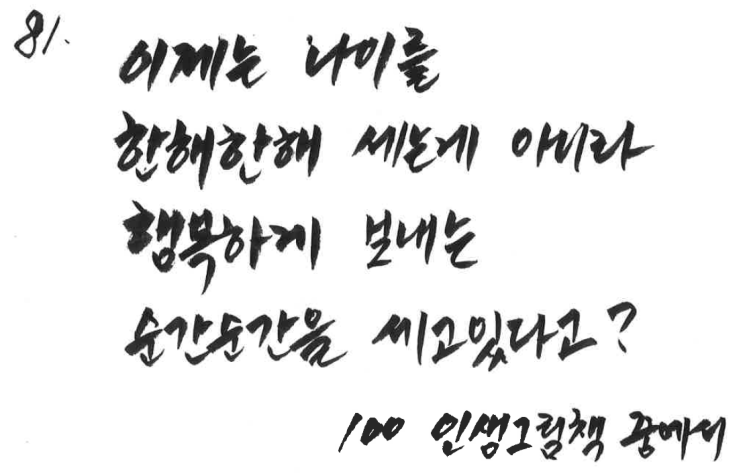 81.
이제는 나이를
한해한해 세는게 아니라
행복하게 보내는
순간순간을 세고있다고?
100 인생그림책 중에서